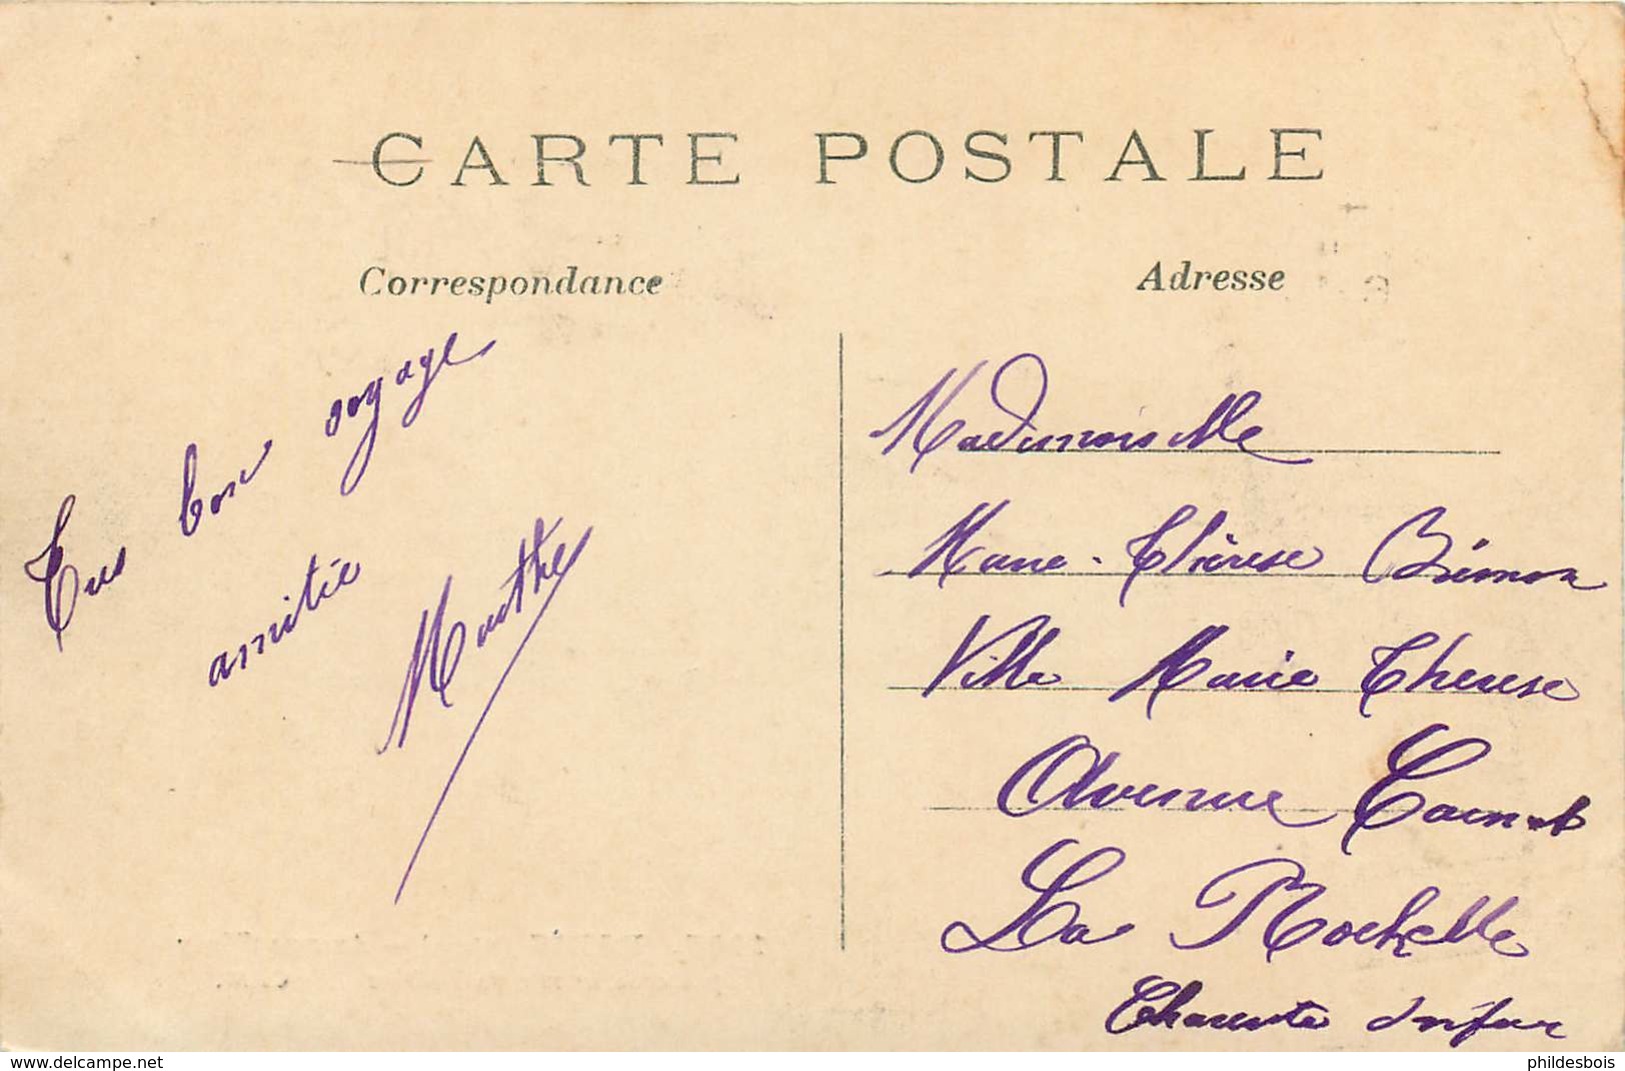 CARTE POSTALE
Correspondance
Adresse
Tres bon voyage
amitié
Marthe
Mademoiselle
Marie-Thérèse
Ville Marie Therese
Avenue Carnot
La Rochelle
Charente Infre
delcampe.net
phildesbois